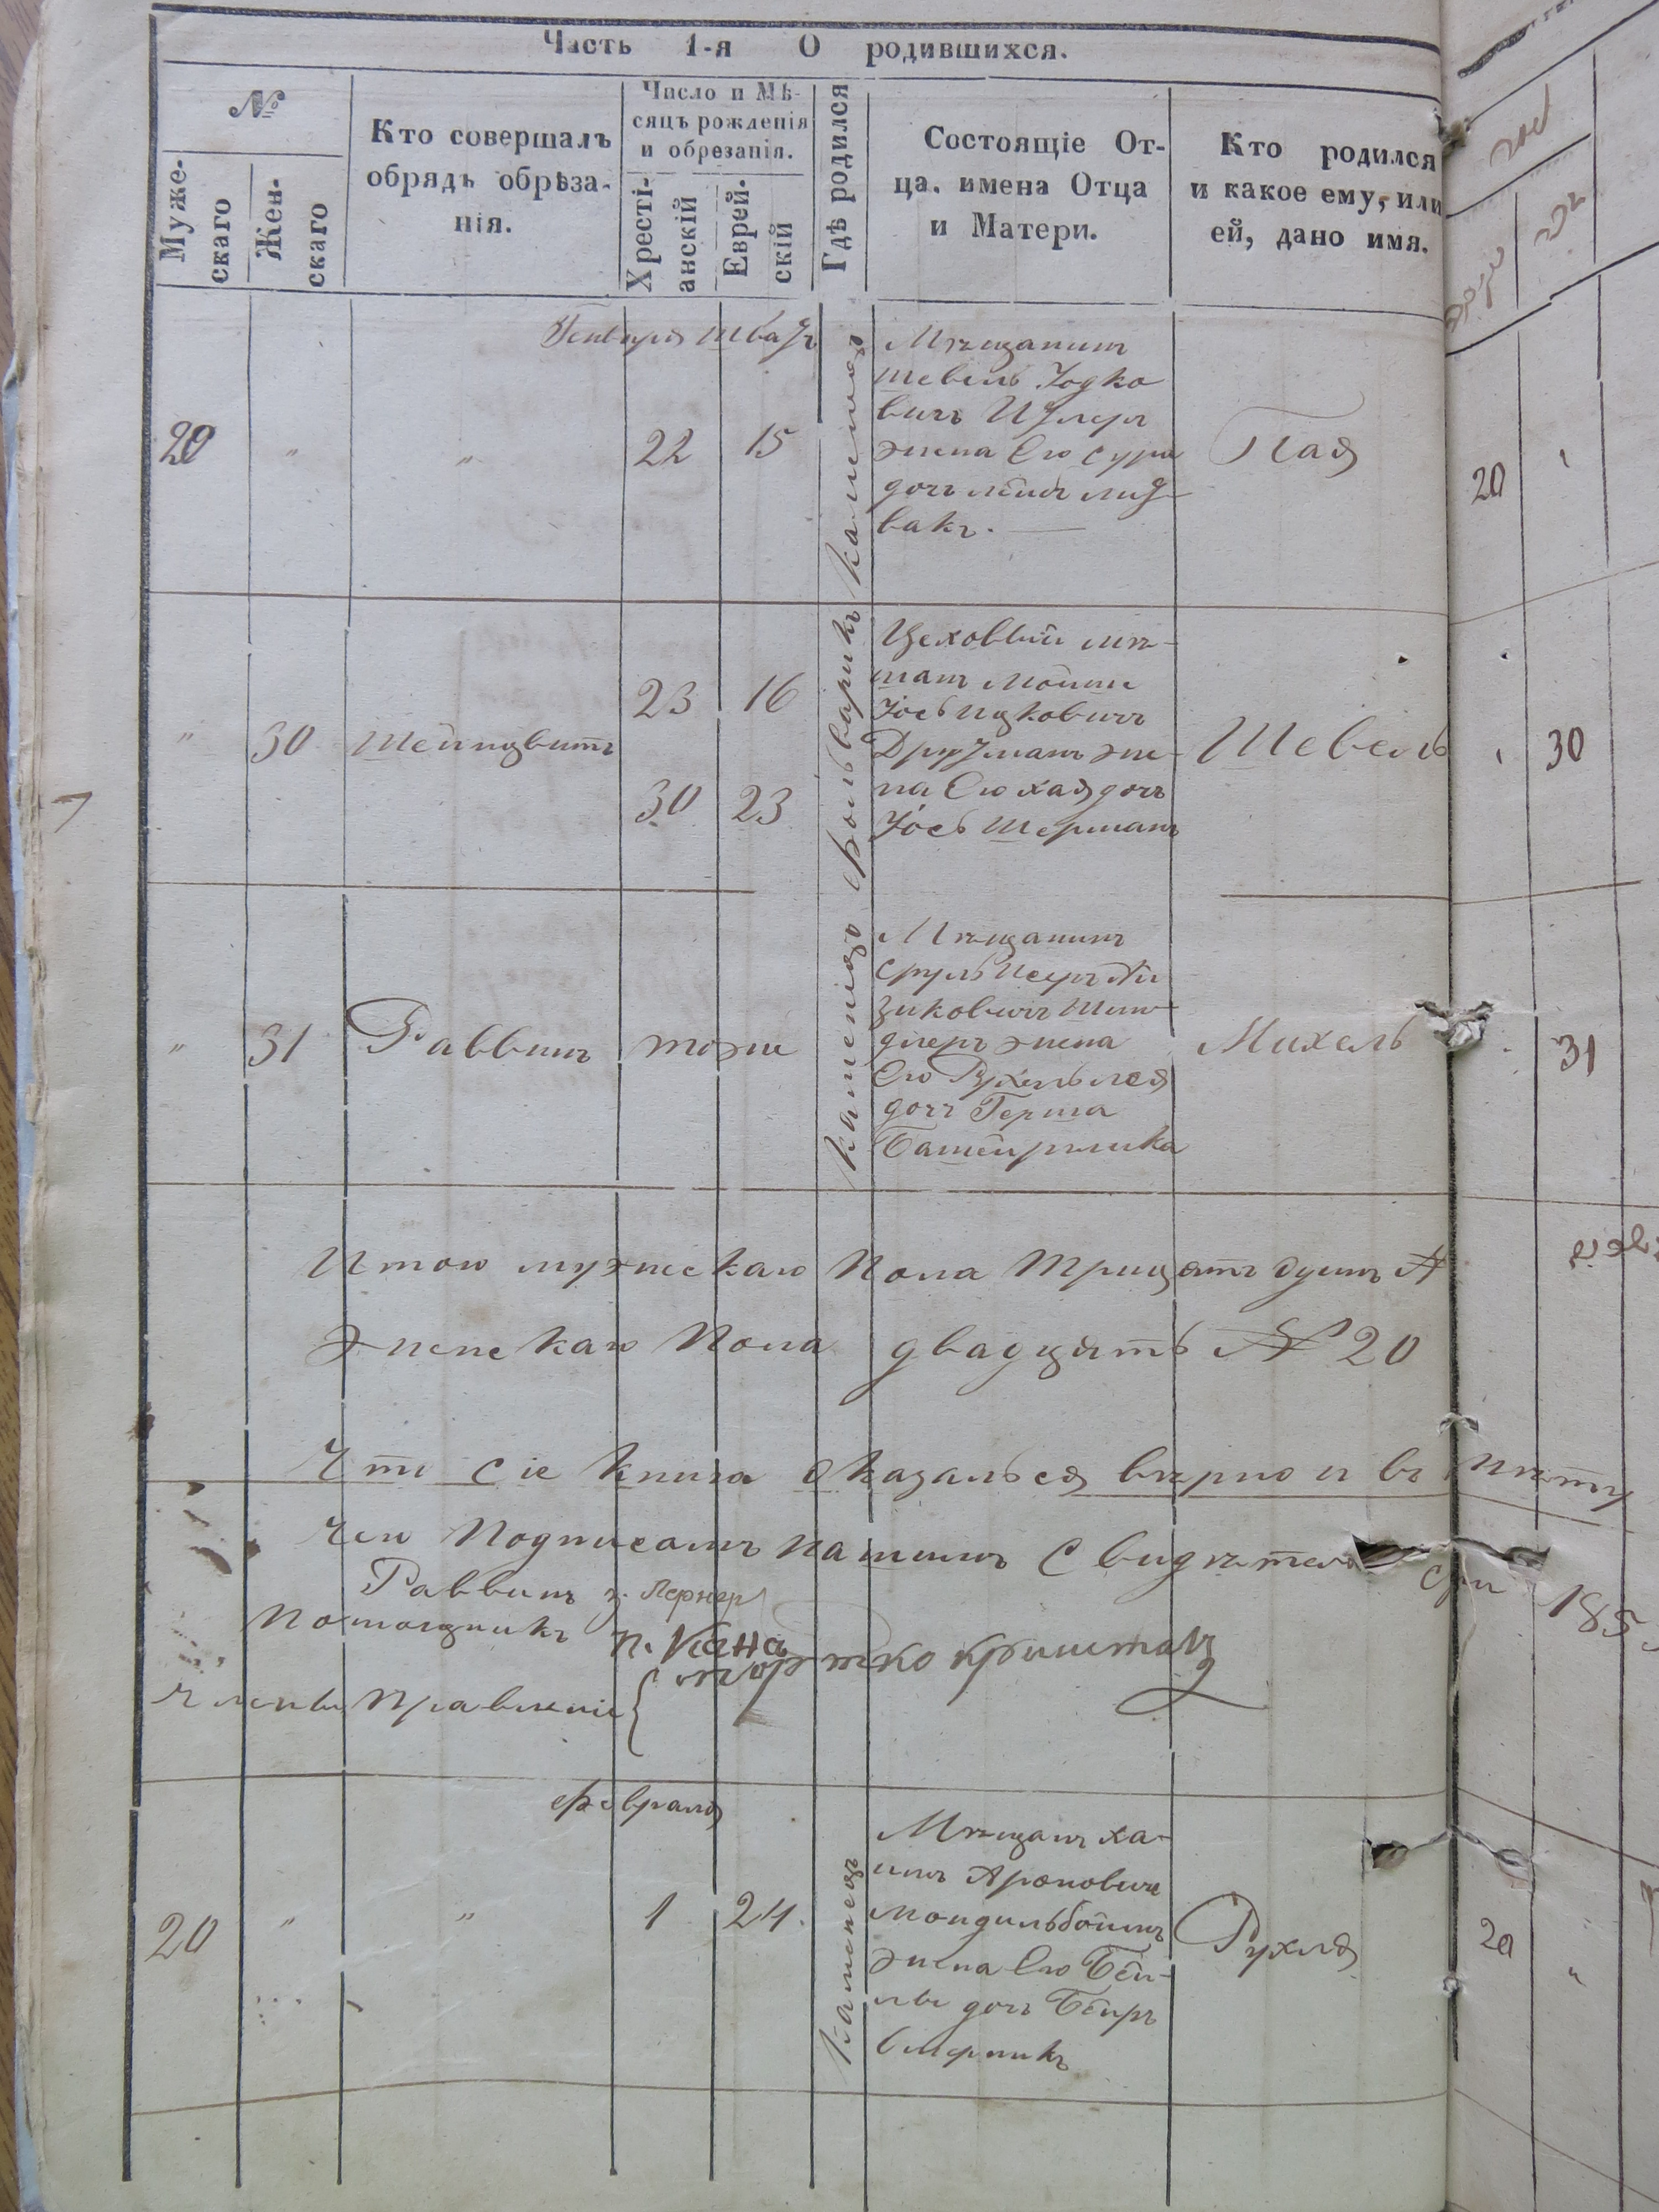 Часть 1-я О родившихся.
№
Муже-
скаго
Жен-
скаго
Кто совершалъ
обрядъ обрѣза-
нія.
Число и Мѣ-
сяцъ рожденія
и обрезанія.
Хресті-
анскій
Еврей-
скій
Гдѣ родился
Состоящіе От-
ца, имена Отца
и Матери.
Кто родился
и какое ему, или
ей, дано имя.
Генваря Шватъ
20 " " 22 15
Каменецъ
Мѣщанинъ
Шевель Іодко
вичъ
жена Его Сура
дочъ Лейбъ
вакъ.
Пая
20
" 30 Шейнцвитъ
23 16
30 23
Фольварикъ
Цеховый мѣ-
щанъ Мошко
Іось Ицковичъ
Друзманъ же-
на Его Хая дочъ
Іось Шерманъ
Шевель
30
" 31 Раввинъ тоже
Каменецъ
Мѣщанинъ
Сруль Исеръ Ай
зиковичъ Шин-
длеръ жена
Его Рухель Лея
дочъ Герша
Михель
31
Итого мужескаго Пола Трицять одинъ №
Женскаго Пола двадцять № 20
Что Сіе Книга Оказалься вѣрно и въ
чемъ Подписомъ нашимъ Свидѣтель
185
Раввинъ Лернер
Помощникъ П. Кана
Члены Правленіе { Мортко Криштал
Февраля
20 " " 1 24.
Каменецъ
Мѣщанъ Ха-
имъ Ароновичъ
Мондильбоймъ
жена Его Бей-
ла дочъ Бееръ
Рухля
20 "